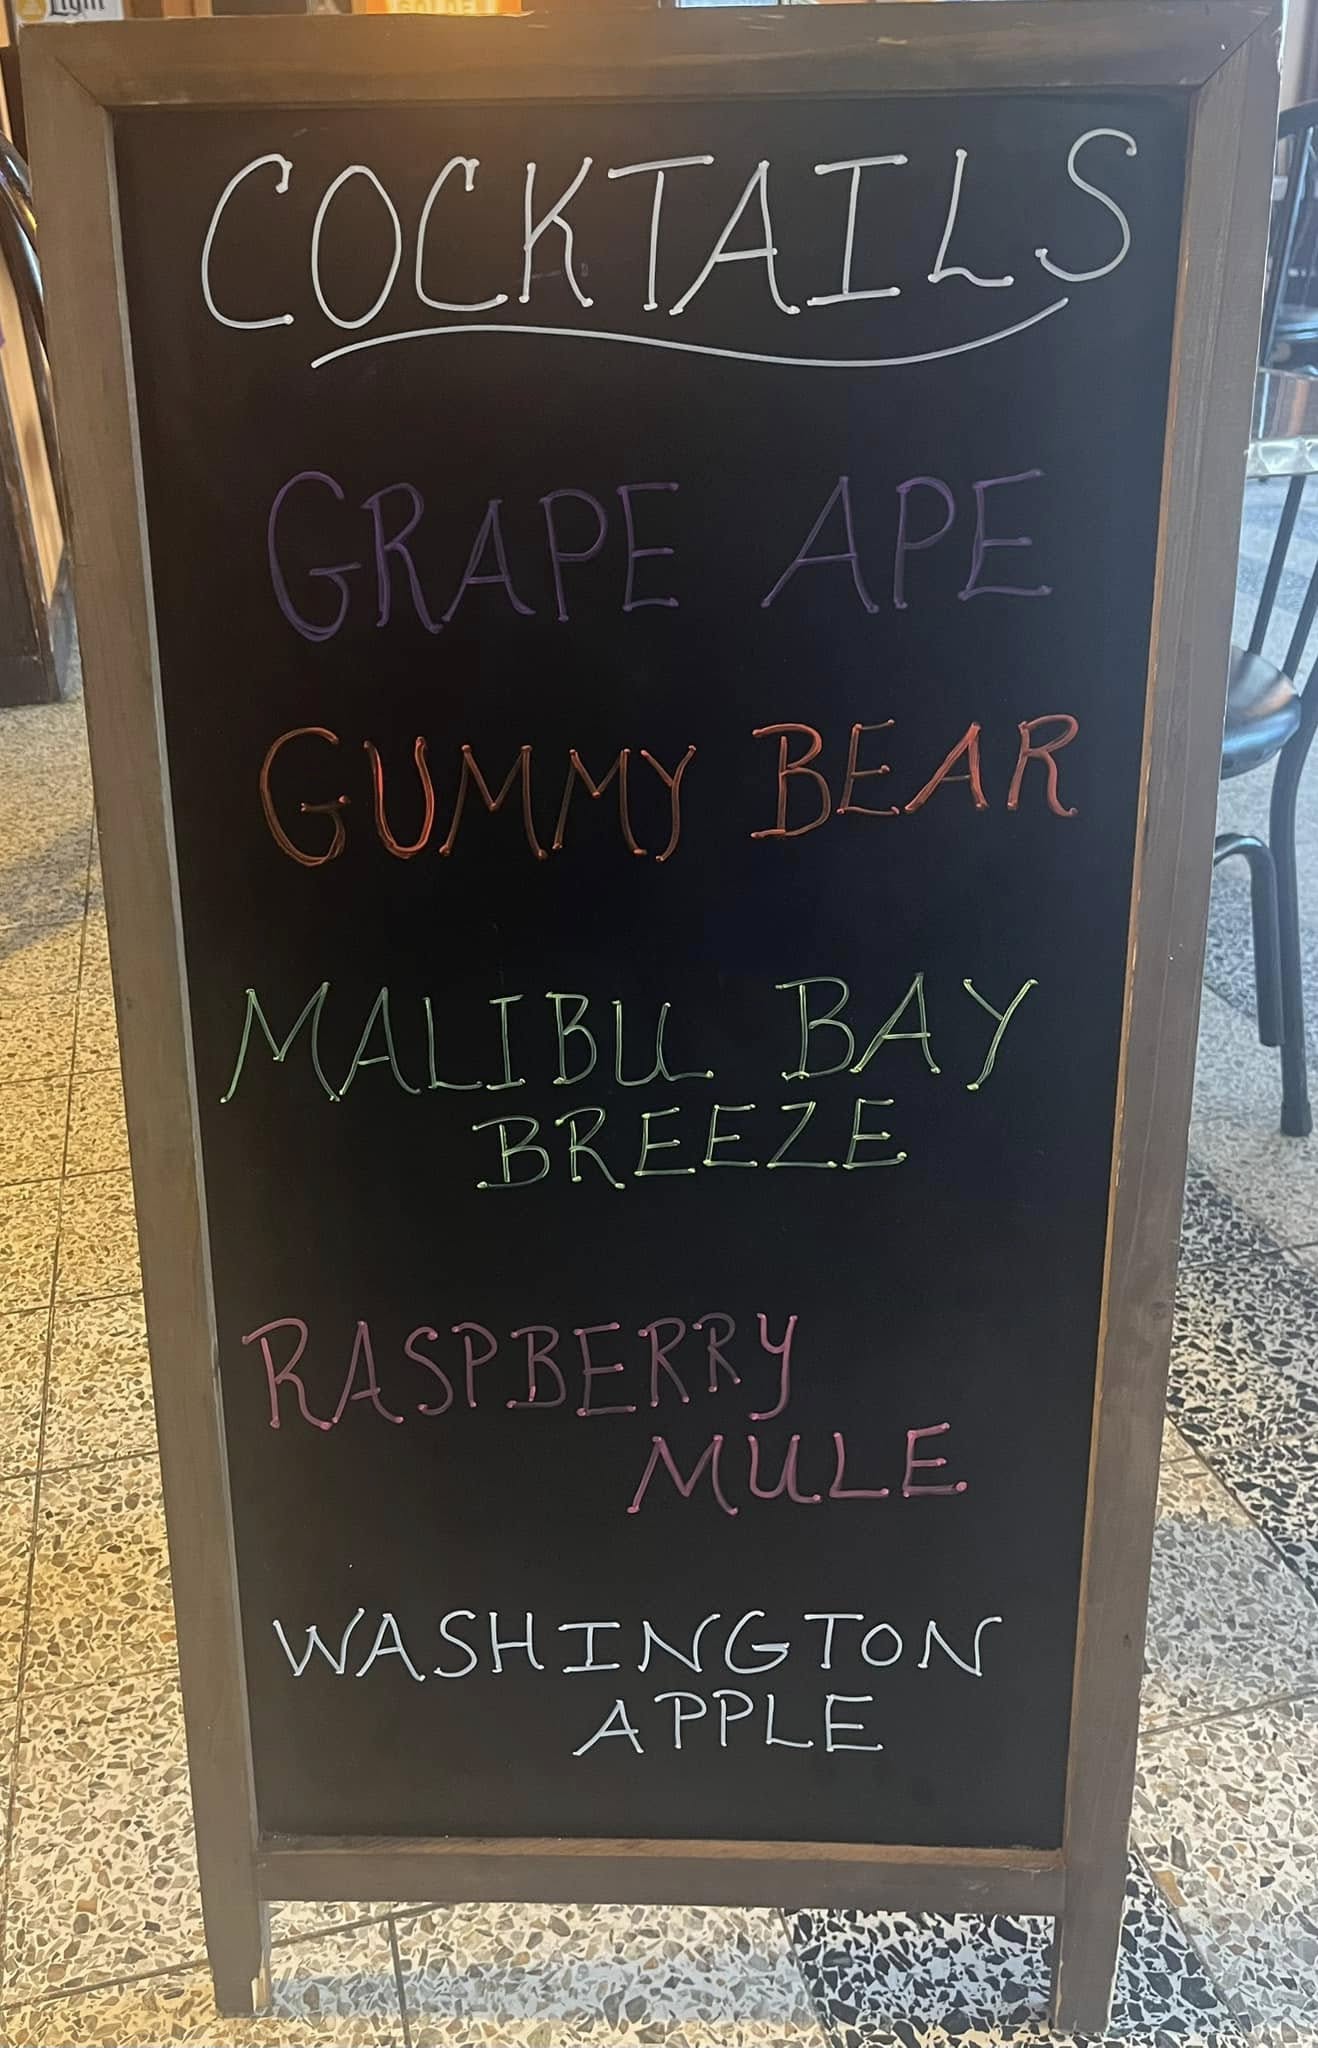 Light
GOLDEN
COCKTAILS
GRAPE APE
GUMMY BEAR
MALIBU BAY
BREEZE
RASPBERRY
MULE
WASHINGTON
APPLE